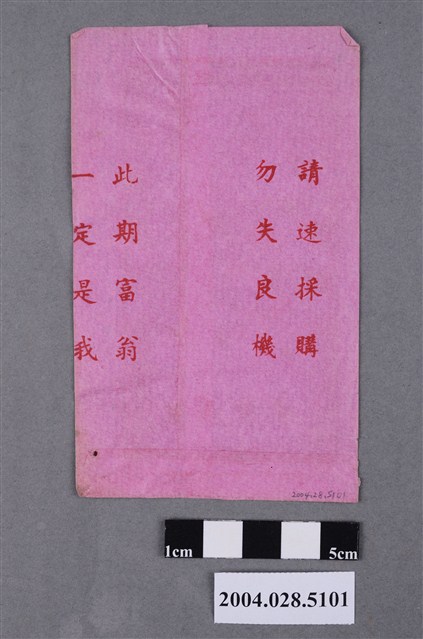 請速採購
勿失良機
此期富翁
一定是我
2004.28.5101
1cm
5cm
2004.028.5101